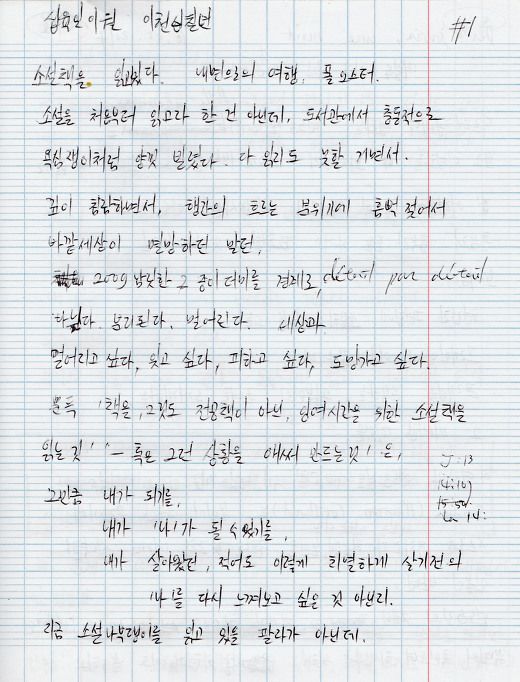 삼월의 이천 이천십칠년
#1
소설책을 읽고있다. 내면으로의 여행. 폴 오스터.
소설을 처음부터 읽고자 한 건 아닌데, 도서관에서 충동적으로
욕심쟁이처럼 양껏 빌렸다. 다 읽지도 못할 거면서.
깊이 침잠하면서, 행간의 흐르는 분위기에 흠뻑 젖어서
바깥세상이 멸망하던 말던,
2009 남짓한 종이 더미를 경계로, détail par détail
나뉜다. 분리된다. 멀어진다. 세상과
멀어지고 싶다, 잊고 싶다, 피하고 싶다, 도망가고 싶다.
문득 '책을, 그것도 전공책이 아닌, 잉여시간을 위한 소설책을
읽는 것' - 혹은 그런 상황을 애써 만드는것'은,
그만큼 내가 되기를,
내가 '나'가 될 수 있기를,
내가 살아왔던, 적어도 이렇게 치열하게 살기전의
'나'를 다시 느껴보고 싶은 것 아닌지.
지금 소설나부랭이를 읽고 있을 팔자가 아닌데.
J:13
14:10
15:50
14: